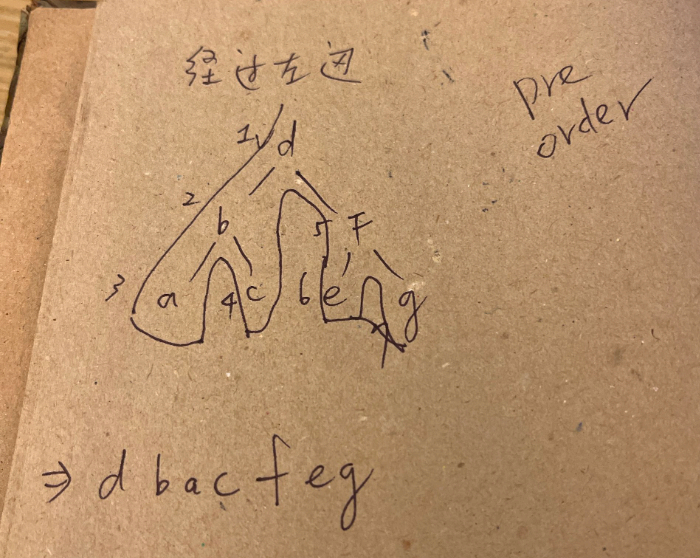 经过左边
pre
order
1 d
2
b 5 F
3 a 4 c 6 e 7 g
⇒ d b a c f e g